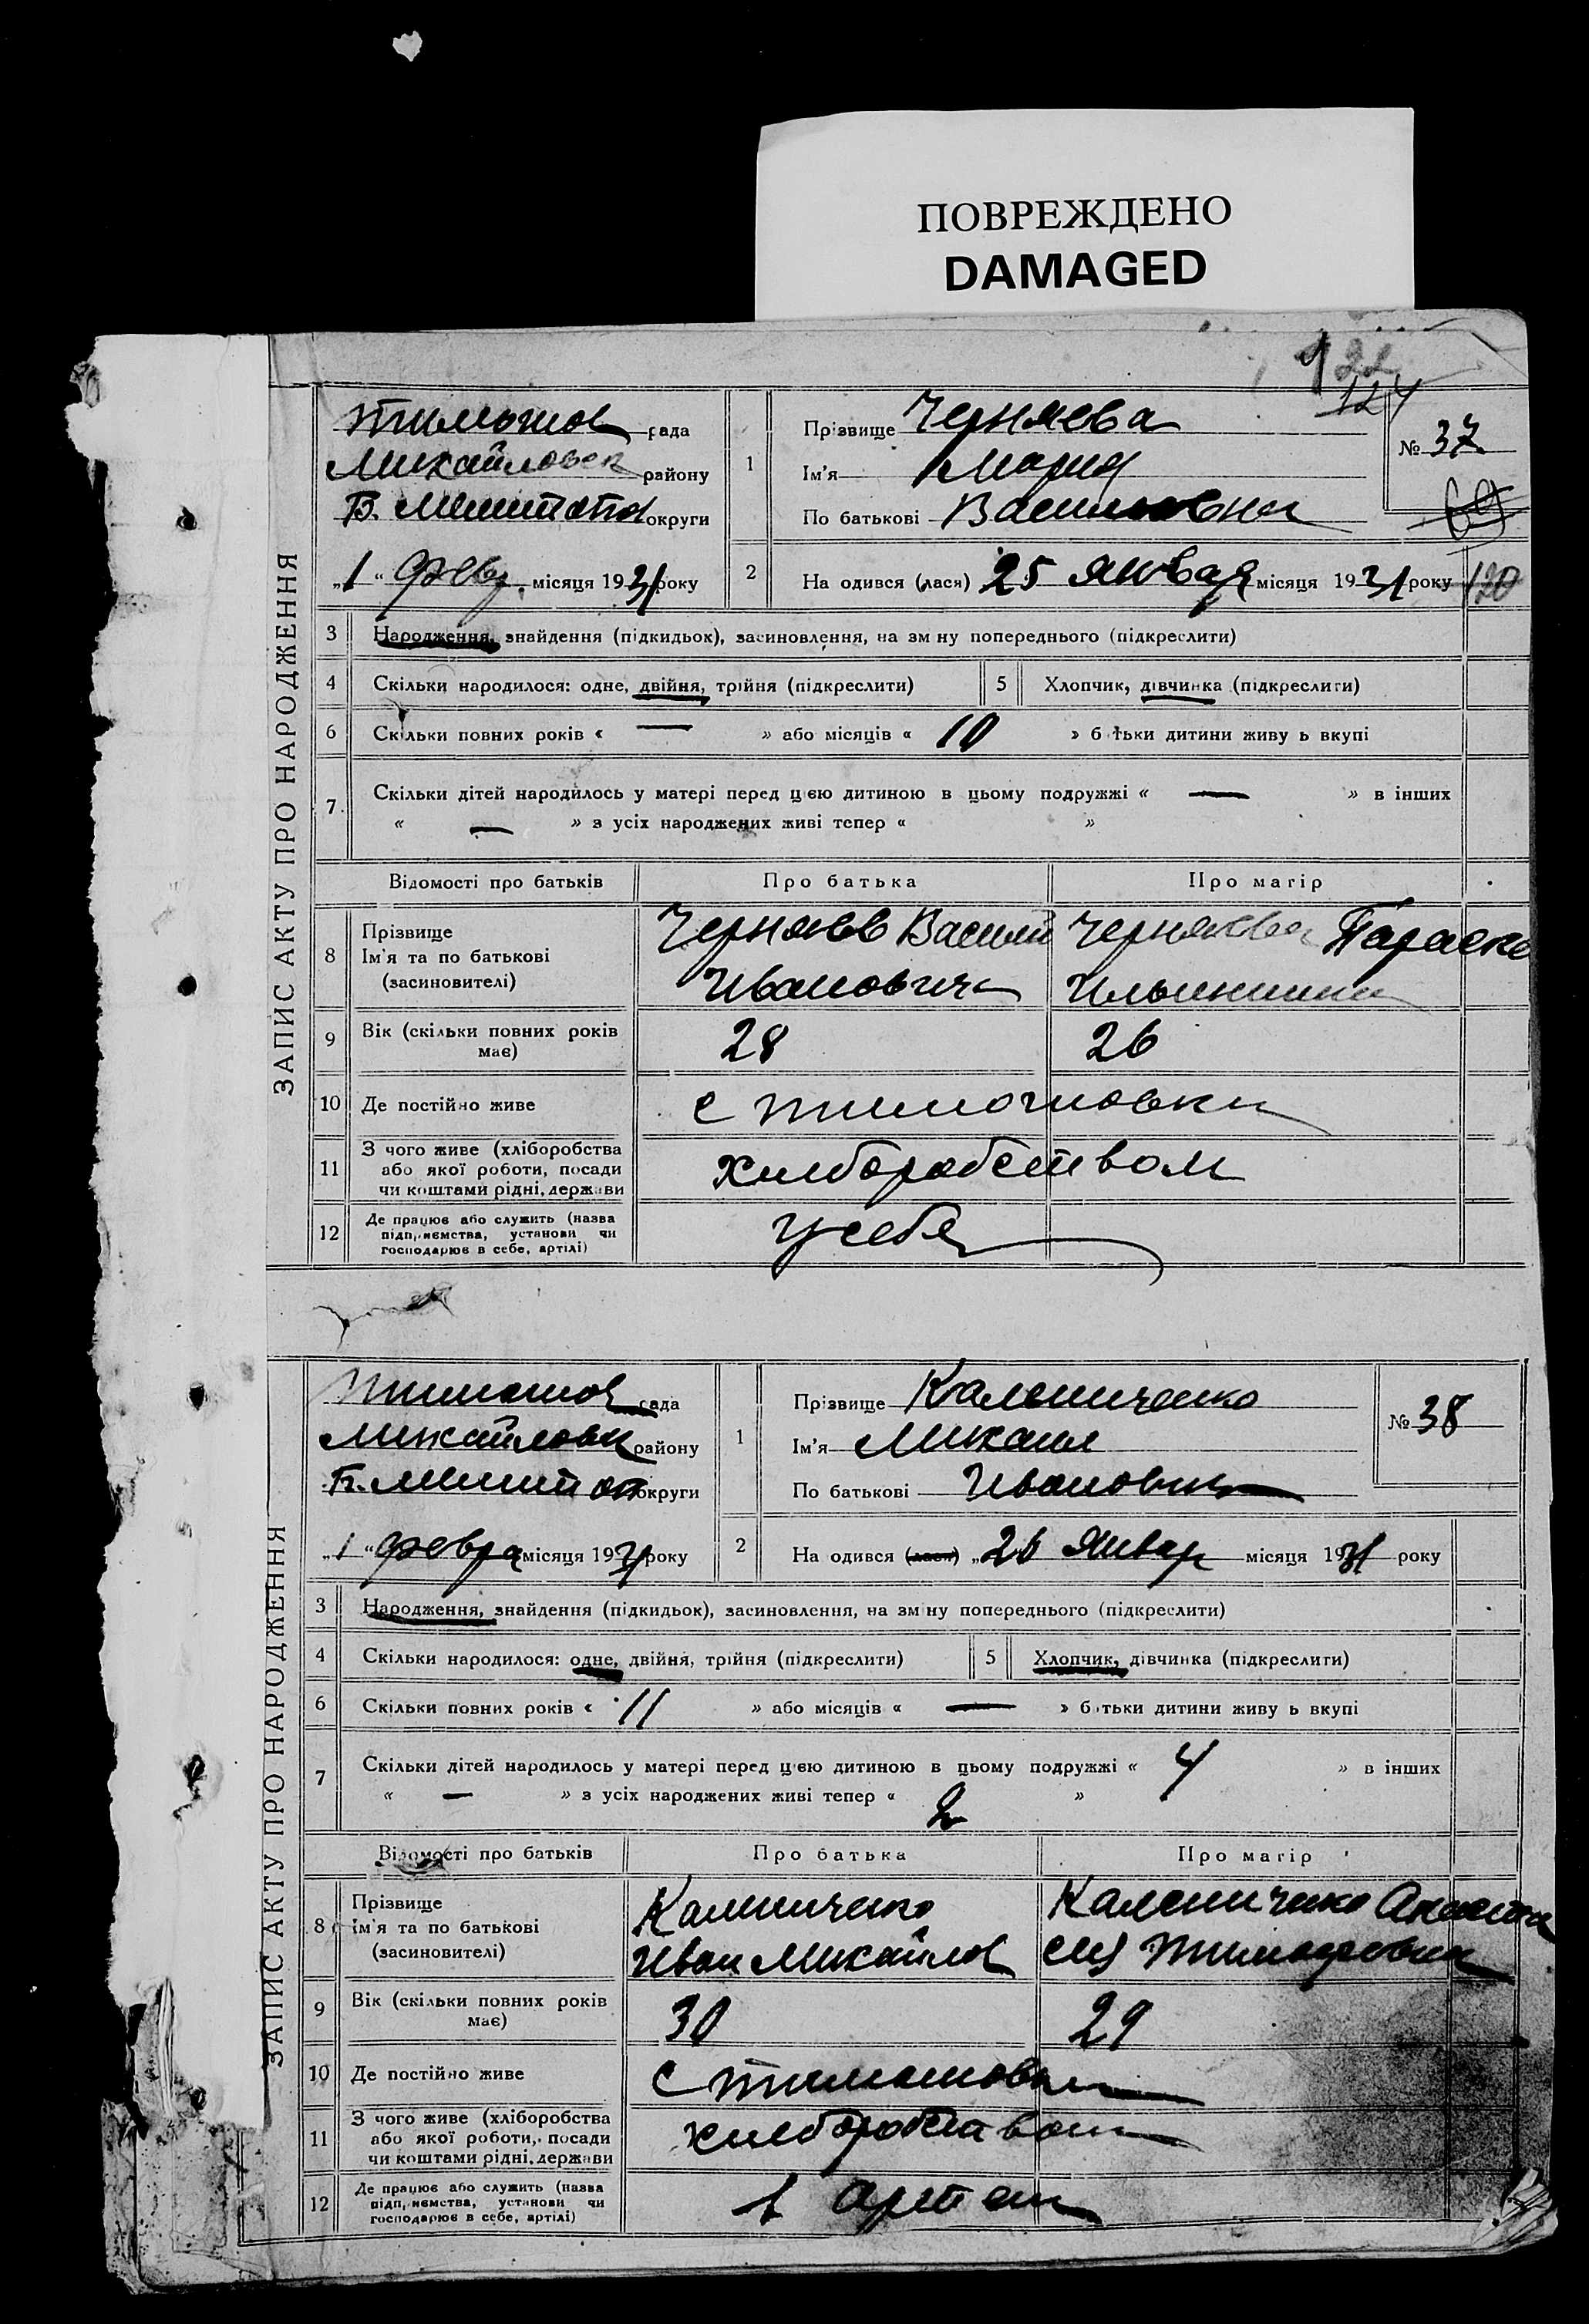 ПОВРЕЖДЕНО
DAMAGED
122
124
ЗАПИС АКТУ ПРО НАРОДЖЕННЯ
Тимошов рада
Михайловск району
Б. Мелитопол округи
„1“ Февр. місяця 1931 року
1 Прізвище Черняева
Ім'я Мария
По батькові Васильевна
№ 37
69
2 На одився (лася) 25 Января місяця 1931 року
120
3 Народження, знайдення (підкидьок), засиновлення, на зм ну попереднього (підкреслити)
4 Скільки народилося: одне, двійня, трійня (підкреслити) 5 Хлопчик, дівчинка (підкреслити)
6 Скільки повних років « — » або місяців « 10 » б тьки дитини живу ь вкупі
7 Скільки дітей народилось у матері перед цією дитиною в цьому подружжі « — » в інших
« — » з усіх народжених живі тепер « »
Відомості про батьків Про батька Про матір
8 Прізвище
Ім'я та по батькові
(засиновителі)
Черняев Василий
Иванович
Черняева Параске
Ильинишна
9 Вік (скільки повних років має) 28 26
10 Де постійно живе с Тимошовки
11 З чого живе (хліборобства
або якої роботи, посади
чи коштами рідні, держави
Хлиборобством
12 Де працює або служить (назва
підприємства, установи чи
господарює в себе, артілі)
У себя
ЗАПИС АКТУ ПРО НАРОДЖЕННЯ
Тимошов рада
Михайловск району
Б. Мелитоп округи
„1“ Февра місяця 1931 року
1 Прізвище Калениченко
Ім'я Михаил
По батькові Иванович
№ 38
2 На одився (лася) „26 Январ місяця 1931 року
3 Народження, знайдення (підкидьок), засиновлення, на зм ну попереднього (підкреслити)
4 Скільки народилося: одне, двійня, трійня (підкреслити) 5 Хлопчик, дівчинка (підкреслити)
6 Скільки повних років « 11 » або місяців « — » б тьки дитини живу ь вкупі
7 Скільки дітей народилось у матері перед цією дитиною в цьому подружжі « 4 » в інших
« — » з усіх народжених живі тепер « 2 »
Відомості про батьків Про батька Про матір
8 Прізвище
Ім'я та по батькові
(засиновителі)
Калениченко
Иван Михайлов
Калениченко Анаста
сия Тимофеевна
9 Вік (скільки повних років має) 30 29
10 Де постійно живе с Тимошовки
11 З чого живе (хліборобства
або якої роботи, посади
чи коштами рідні, держави
Хлиборобством
12 Де працює або служить (назва
підприємства, установи чи
господарює в себе, артілі)
в Артели